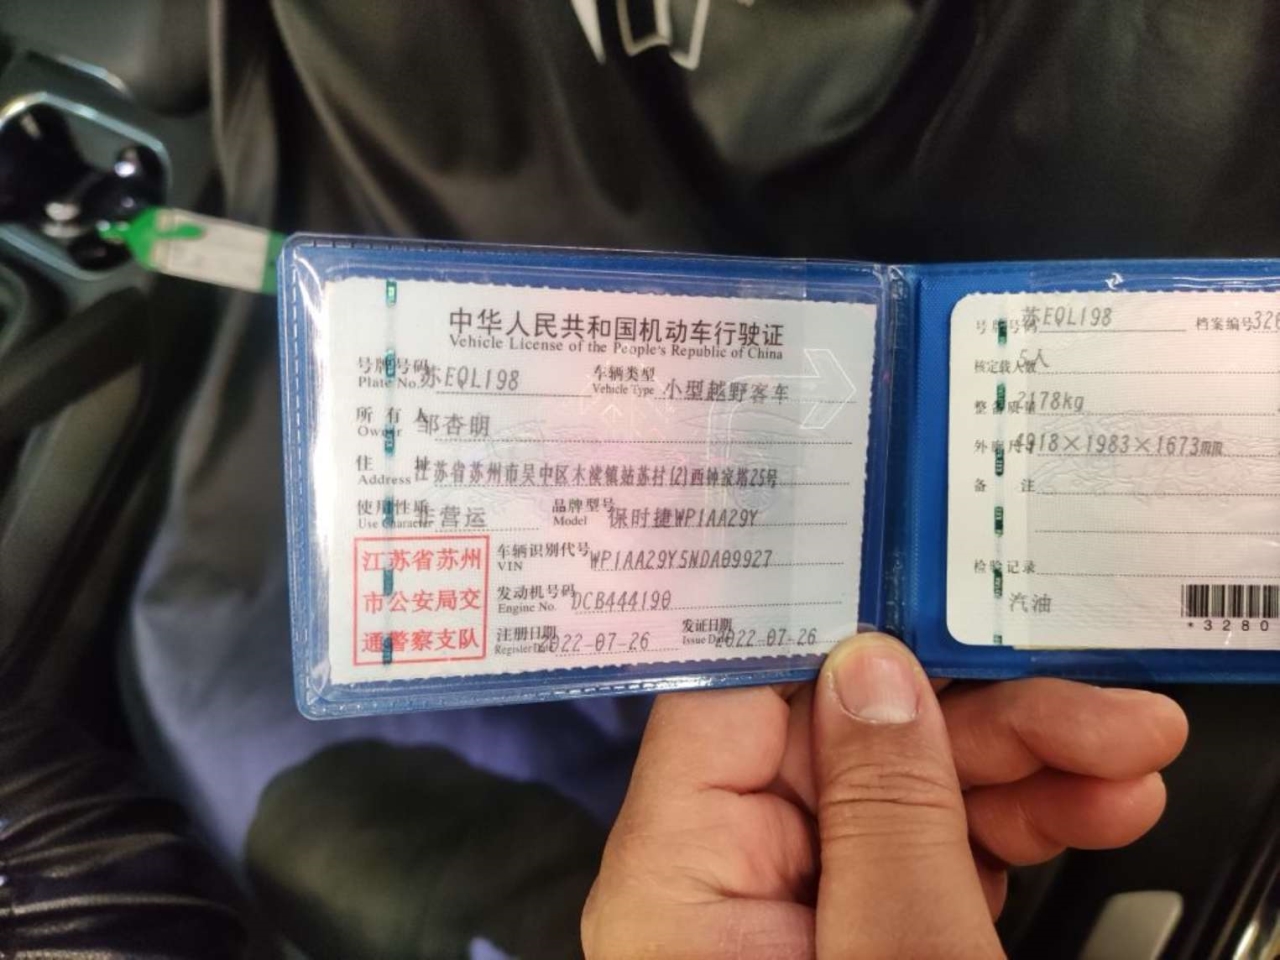 中华人民共和国机动车行驶证
Vehicle License of the People's Republic of China
号牌号码 Plate No. 苏EQL198 车辆类型 Vehicle Type 小型越野客车
所有人 Owner 邹杏明
住址 Address 江苏省苏州市吴中区木渎镇姑苏村(2)西钟家塔25号
使用性质 Use Character 非营运 品牌型号 Model 保时捷WP1AA29Y
江苏省苏州
市公安局交
通警察支队
车辆识别代号 VIN WP1AA29Y5NDA09927
发动机号码 Engine No. DCB444190
注册日期 Register Date 2022-07-26 发证日期 Issue Date 2022-07-26
号牌号码 苏EQL198 档案编号 326
核定载人数 5人
整备质量 2178kg
外廓尺寸 4918×1983×1673mm
备注
检验记录
汽油
*3280